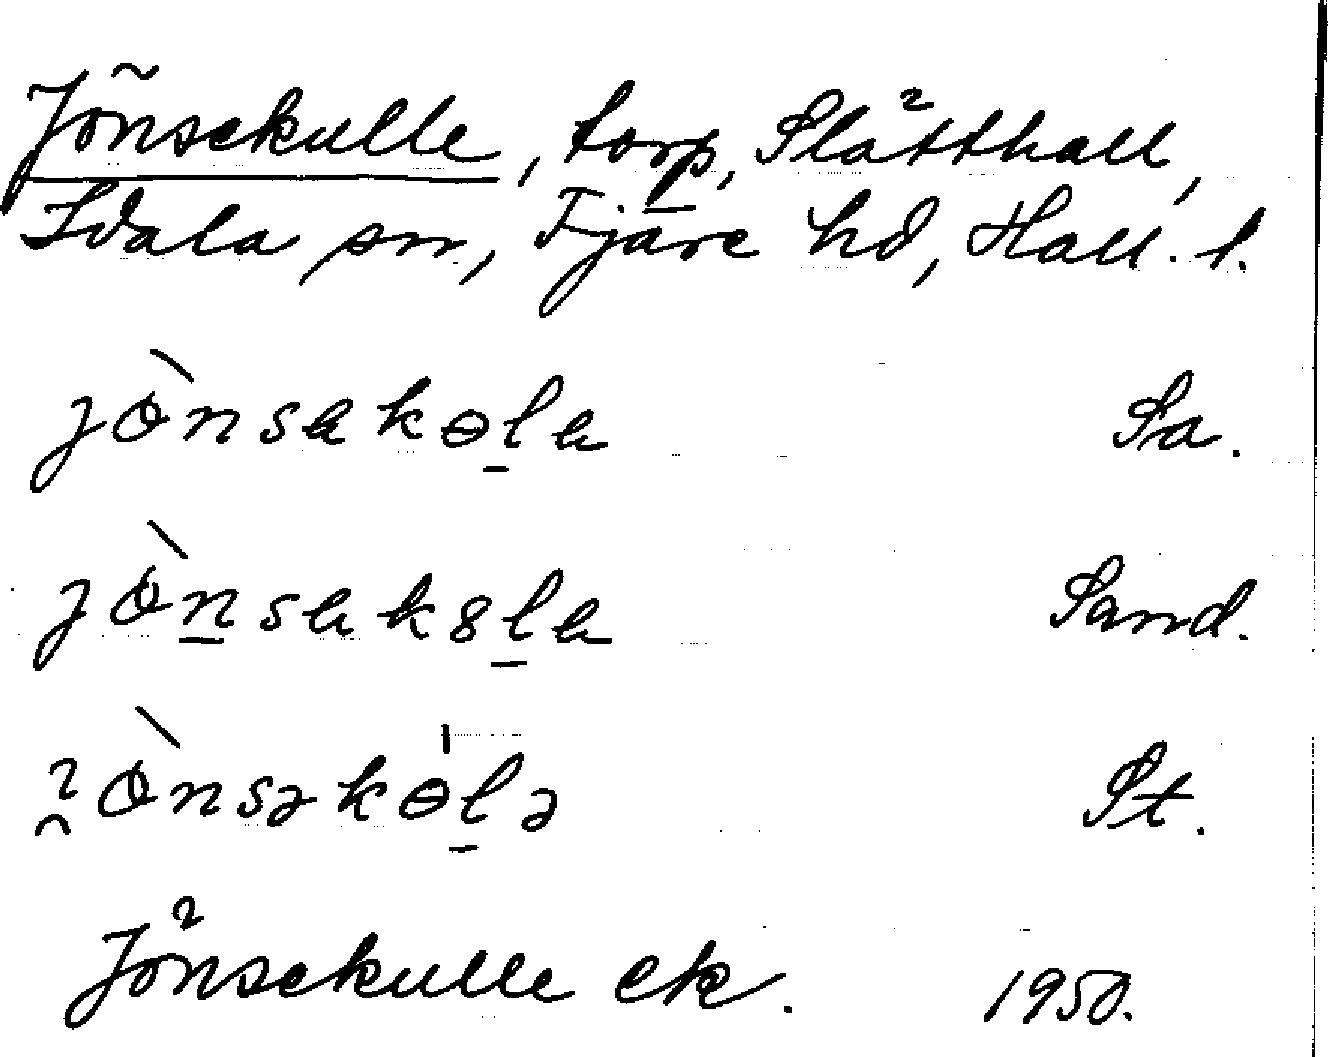 Jönsekulle, torp, Slätthall,
Idala sn, Fjäre hd, Hall. l.
jò̀nsekɵle Sa.
jò̀nsek8le Sand.
ò̀nsəkɵlə St.
Jönsekulle ek. 1950.